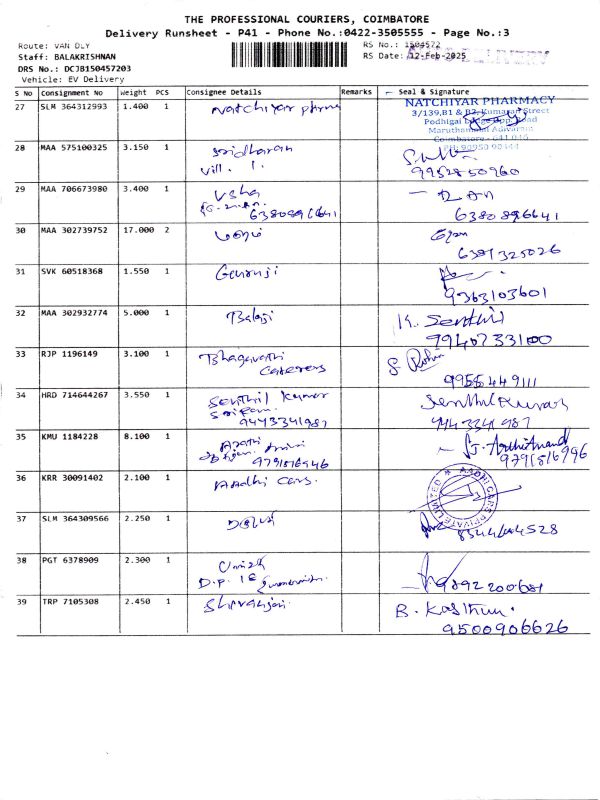 THE PROFESSIONAL COURIERS, COIMBATORE
Delivery Runsheet - P41 - Phone No.:0422-3505555 - Page No.:3
Route: VAN DLY
RS No.: 1504572
Staff: BALAKRISHNAN
RS Date: 12-Feb-2025
DELIVERY
DRS No.: DCJB150457203
Vehicle: EV Delivery
S No Consignment No Weight PCS Consignee Details Remarks Seal & Signature
27 SLM 364312993 1.400 1 Natchiyar
NATCHIYAR PHARMACY
3/139,B1 & B2, Kumaran Street
Podhigai Opp. Road
Maruthamalai Adivaram
Coimbatore - 641 046
PH: 90950 90144
28 MAA 575100325 3.150 1 Sridharan
Vill.
9952850960
29 MAA 706673980 3.400 1 Usha
6380896641
6380896641
30 MAA 302739752 17.000 2
6381325026
31 SVK 60518368 1.550 1
9363103601
32 MAA 302932774 5.000 1 Balaji K. Senthil
7940733100
33 RJP 1196149 3.100 1 Bhagavathi
Caterers
9955449111
34 HRD 714644267 3.550 1 Senthil Kumar Senthil Kumar
9443341987 9443341987
35 KMU 1184228 8.100 1 Arathi
9791516946
9791516996
36 KRR 30091402 2.100 1 Aadhi Cars.
AADHI CARS PRIVATE LIMITED
37 SLM 364309566 2.250 1
8344604528
38 PGT 6378909 2.300 1
D.P.
9892200681
39 TRP 7105308 2.450 1 B. Kasthuri
9500906626